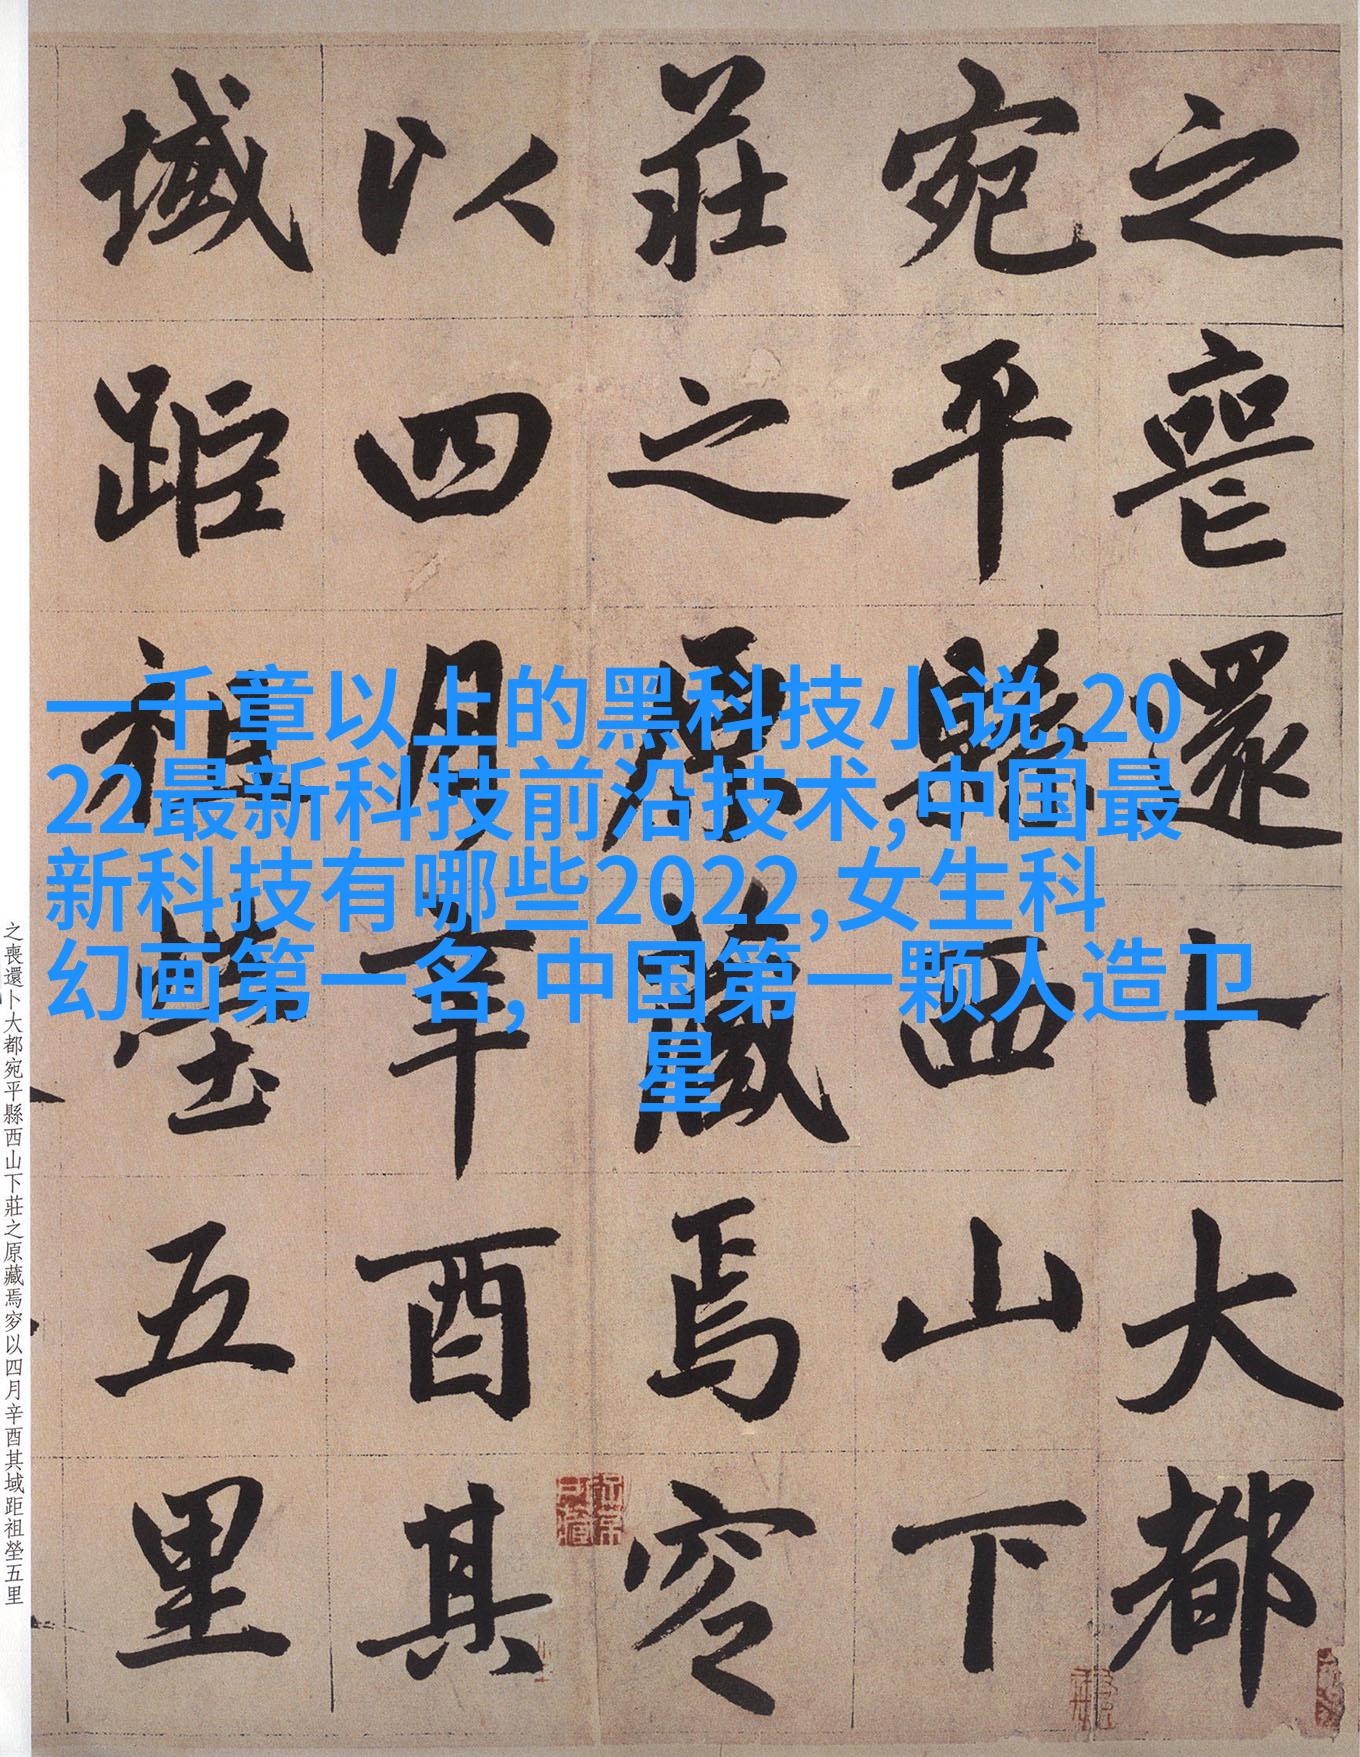 之喪還卜大都
宛平縣西山下
莊之原藏焉穸
以四月辛酉其
域距祖塋五里
一千章以上的黑科技小说,20
22最新科技前沿技术,中国最
新科技有哪些2022,女生科
幻画第一名,中国第一颗人造卫
星
之喪還卜大都宛平縣西山下莊之原藏焉穸以四月辛酉其域距祖塋五里